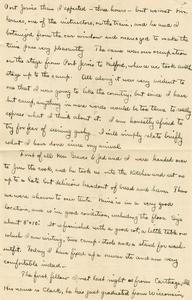 Port Jervis than I expected - three hours - but Mr.
Horner, one of the instructors, with the train, and he and I
botanized from the car window and managed to make the
time pass very pleasantly. The same was our occupation
on the stage from Port Jervis to Milford, where we took another
stage up to the camp. All along it was very evident to
me that I was going to like the country; but since I have
hit camp, anything in mere words would be too tame to really
express what I think about it. I am honestly afraid to
try for fear of seeming gushy. I will simply state briefly
what I have done since my arrival.
First of all Mr. and I went to the
cook, and he took us into the kitchen and set us
up to a but delicious luncheon of bread and ham. Then
we were shown to our tents. Mine is in a very good
location, and is in good condition, including the floor. Size
about 8'x10'. It is furnished with a good cot, a little table on
which I am writing, two camp-stools and a stand for wash-
outfit. Today I have fixed up a and am very
comfortable indeed.
The first fellow I met last night is from Carthage,
His name is Clark, he has just graduated from Wisconsin